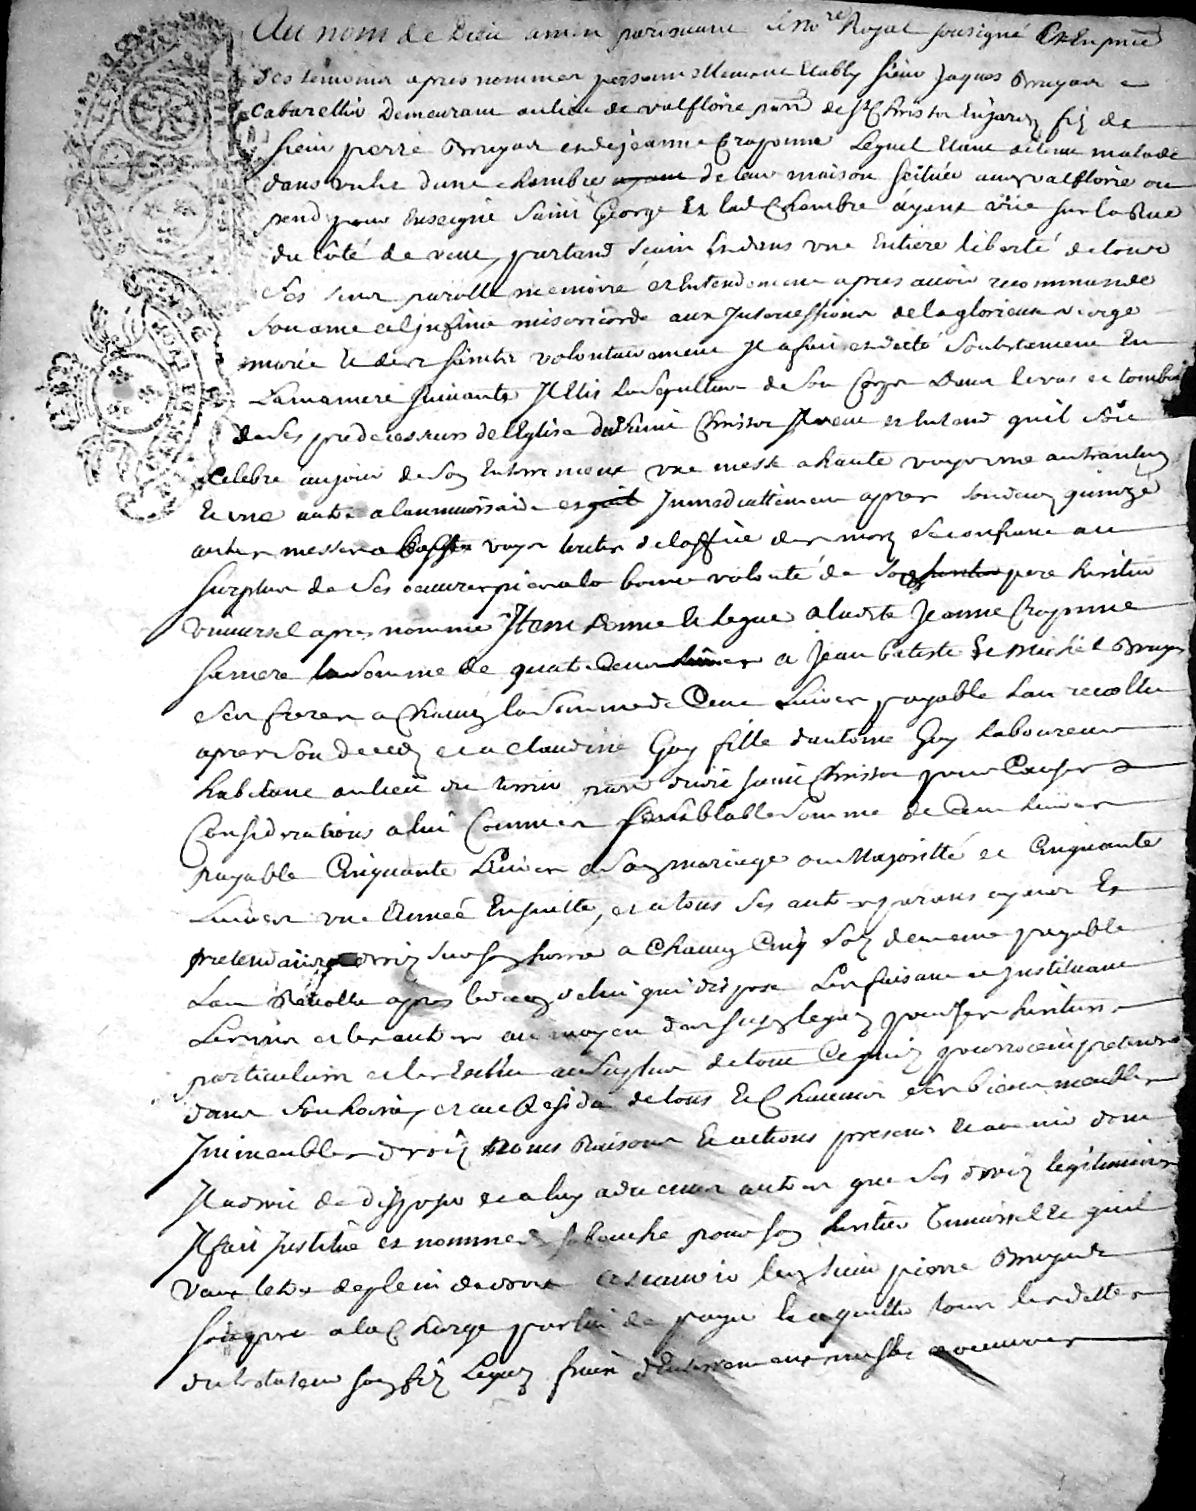 Au nom de Dieu amen pardevant le no.re Royal sousigné Et En pnce
des temoins apres nommes personnellement Etably sieur Jaques Bruyas
Cabarettier Demeurant au lieu de valfloire parr de st Christo Enjarez fiz de
sieur pierre Bruyas et de jeanne Craponne Lequel Etant detenu malade
dans un lit d'une chambre de leur maison scituée aud valfloire ou
pend pour Enseigne Saint George Et lad Chambre ayant vüe sur la Rue
du côté de vent, partand sain Endans une Entiere liberté de tous
ses sens parolle memoire et Entendement apres avoir recommandé
son ame a l'infinie misericorde aux Intercessions de la glorieuse vierge
marie Et des saints volontairement Il a fait et dicté son testament En
La maniere suivante Il élis la sepulture de son Corps Dans le vas et tombeau
de ses predecesseurs de l'Eglise dud Saint Christo Il veut et Entend quil soit
celebré au jour de son Enterrement une messe a haute voye une au trantin
Et une autre a l'anniversaire et Immediattement apres son deces quinze
autres messes a basse voye toutes de l'office des morts se confiant au
surplus de ses oeuvres pies a la bonne volonté de son pere heritier
universel apres nommé Item donne Et legue a ladite Jeanne Craponne
sa mere la somme de quatre Cent Livres a Jean batiste Et Michel Bruyas
ses freres a chacun la somme de Cent Livres payable L'an revollu
apres son deces et a Claudine Goy fille d'antoine Goy Laboureur
habitant au lieu du parr dudit Saint Christo pour Causes Et
Considerations a lui Connues semblable somme de Cent Livres
payable Cinquante Livres a son mariage ou Majoritté et Cinquante
Livres une Année Ensuitte, et a tous ses autres parans ayant Et
pretendants droiz sur son hoirie a chacun Cinq solz de meme payable
L'an Revollu apres le deces de lui qui dispose Les faisant et Instituant
Les uns et les autres au moyen des susd legatz pour ses heritiers
particuliers et les Exclu au surplus de tout Ce quils pourroient pretendre
dans son hoirie, et au Residu de tous Et Chacuns ses biens meubles
Immeubles droitz noms Raisons Et actions presents Et avenir dont
Il a droit de disposer et a luy advenus autres que ses droitz legitimaires
Il fait Institue et nomme de sa bouche pour son heritier Universel Et quil
veut letre de plein droit et scavoir led sieur pierre Bruyas
son pere a la Charge par lui de payer Et acquitter tous les dettes
du testateur son fiz Legatz fraix d'Enterrement messes et oeuvres